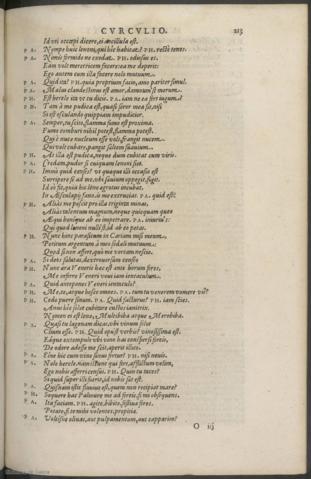 CVRCVLIO. 213
Id uti occupi dicere, ei ancillula est.
PA. Nempe huic lenoni, qui hic habitat? PH. recte tenes.
PA. Nimis formido ne euadat. PH. odiosus es.
Eam volt meretricem facere: ea me deperit:
Ego autem cum illa facere nolo mutuum.
PA. Quid ita? PH. quia proprium facio, amo pariter simul.
PA. Malus clandestinus est amor, damnum'st merum.
PH. Est hercle ita vt tu dicis. PA. iam ne ea fert iugum?
PH. Tam à me pudica est, quasi soror mea sit, nisi
Si est osculando quippiam impudicior.
PA. Semper, tu scito, flamma fumo est proxima.
Fumo comburi nihil potest, flamma potest.
Qui è nuce nucleum esse volt, frangit nucem.
Qui volt cubare, pangit saltem suauium.
PH. At illa est pudica, neque dum cubitat cum viris.
PA. Credam, pudor si cuiquam lenoni siet.
PH. Immò quid censes? vt quaque illi occasio est
Surripere se ad me, vbi sauium oppegit, fugit.
Id eò fit, quia hic leno ægrotus incubat
In Æsculapij fano, is me excruciat. PA. quid est?
PH. Aliàs me poscit pro illa triginta minas,
Aliàs talentum magnum, neque quicquam queo
Æqui bonique ab eo impetrare. PA. iniuriu's:
Qui quod lenoni nulli'st, id ab eo petas.
PH. Nunc hinc parasitum in Cariam misi meum
Petitum argentum à meo sodali mutuum:
Quod si non affert, quò me vortam nescio.
PA. Si deos salutas, dextrouorsum censeo.
PH. Nunc ara Veneris hæc est ante horum fores,
Me inferre Veneri voui iam ientaculum.
PA. Quid antepones Veneri ientaculo?
PH. Me, te, atque hosce omnes. PA. tum tu venerem vomere vis?
PH. Cedo puere sinum. PA. Quid facturus? PH. iam scies.
Anus hic solet cubitare custos ianitrix.
Nomen ei est lena, Multibiba atque Merobiba.
PA. Quasi tu lagenam dicas, vbi vinum solet
Chium esse. PH. Quid opust verbis? vinosissima est.
Eáque extemplo vbi vino has conspersi foreis,
De odore adesse me scit, aperit illico.
PA. Eine hic cum vino sinus fertur? PH. nisi neuis.
PA. Nolo hercle, nam istunc qui fert, afflictum velim,
Ego nobis afferri censui. PH. Quin tu taces?
Si quid super illi fuerit, id nobis sat est.
PA. Quisnam istic fluuius est, quem non recipiat mare?
PH. Sequere hac Palinure me ad foreis, fi mi obsequens.
PA. Ita faciam. PH. agite, bibite, festiua fores.
Potate, fite mihi volentes, propitiæ.
PA. Voltisne oliuas, aut pulpamentum, aut capparim?
O iij